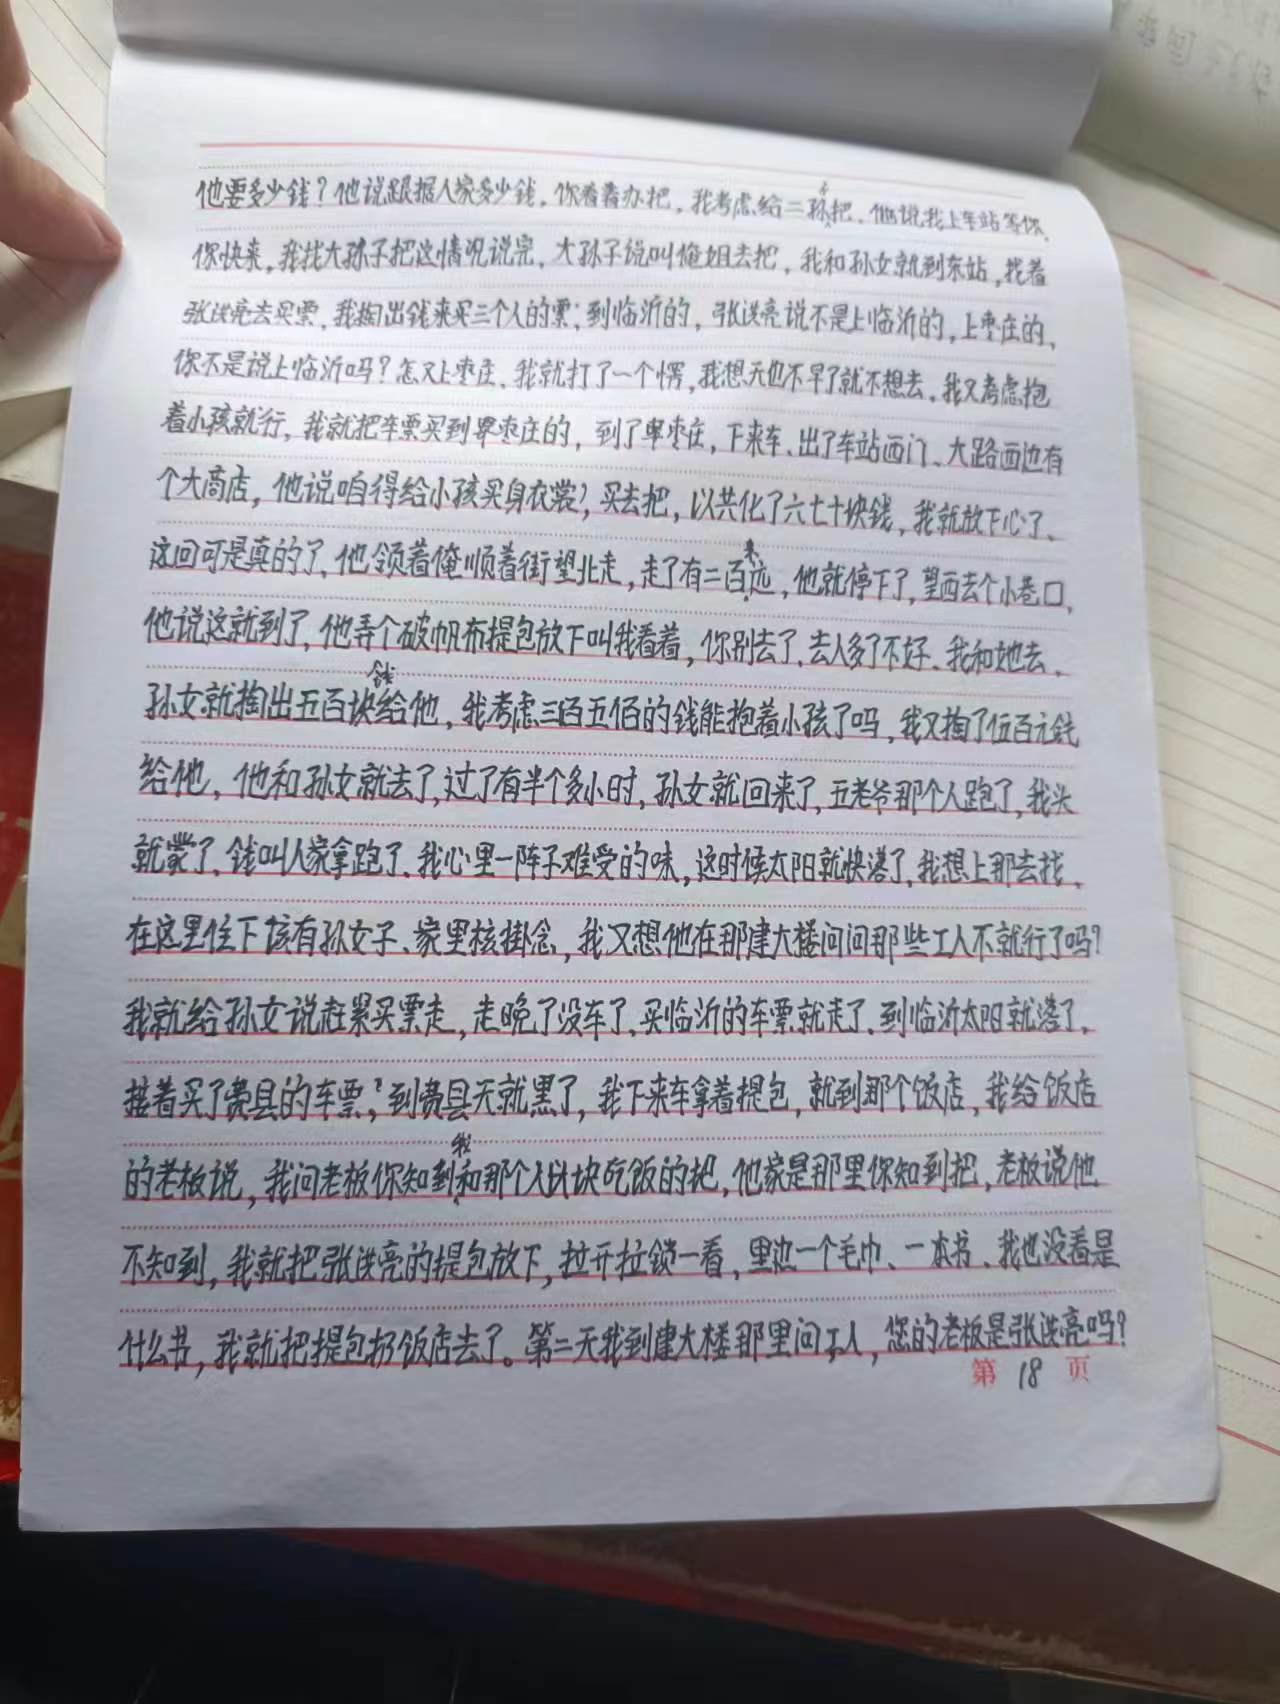 他要多少钱？他说跟据人家多少钱，你看着办把，我考虑给二孙子把，他说我上车站等你，
你快来，我找大孙子把这情况说完，大孙子说叫俺姐去把，我和孙女就到东站，找着
张洪亮去买票，我掏出钱来买三个人的票；到临沂的，张洪亮说不是上临沂的，上枣庄的，
你不是说上临沂吗？怎又上枣庄、我就打了一个愣，我想天也不早了就不想去，我又考虑抱
着小孩就行，我就把车票买到卑枣庄的，到了卑枣庄，下来车、出了车站西门、大路西边有
个大商店，他说咱得给小孩买身衣裳？买去把，以共化了六七十块钱，我就放下心了、
这回可是真的了，他领着俺顺着街望北走，走了有二百来远，他就停下了，望西去个小巷口，
他说这就到了，他弄个破帆布提包放下叫我看着，你别去了、去人多了不好、我和她去、
孙女就掏出五百块钱给他，我考虑三百五佰的钱能抱着小孩了吗，我又掏了伍百元钱
给他，他和孙女就去了，过了有半个多小时，孙女就回来了，五老爷那个人跑了，我头
就蒙了、钱叫人家拿跑了、我心里一阵子难受的味，这时候太阳就快落了，我想上那去找、
在这里住下该有孙女子、家里核掛念，我又想他在那建大楼问问那些工人不就行了吗？
我就给孙女说赶累买票走，走晚了没车了、买临沂的车票就走了、到临沂太阳就落了、
接着买了费县的车票；到费县天就黑了，我下来车拿着提包，就到那个饭店，我给饭店
的老板说，我问老板你知到我和那个人以块吃饭的把，他家是那里你知到把，老板说他
不知到，我就把张洪亮的提包放下，拉开拉锁一看，里边一个毛巾、一本书、我也没看是
什么书，我就把提包扔饭店去了。第二天我到建大楼那里问工人，您的老板是张洪亮吗？
第 18 页